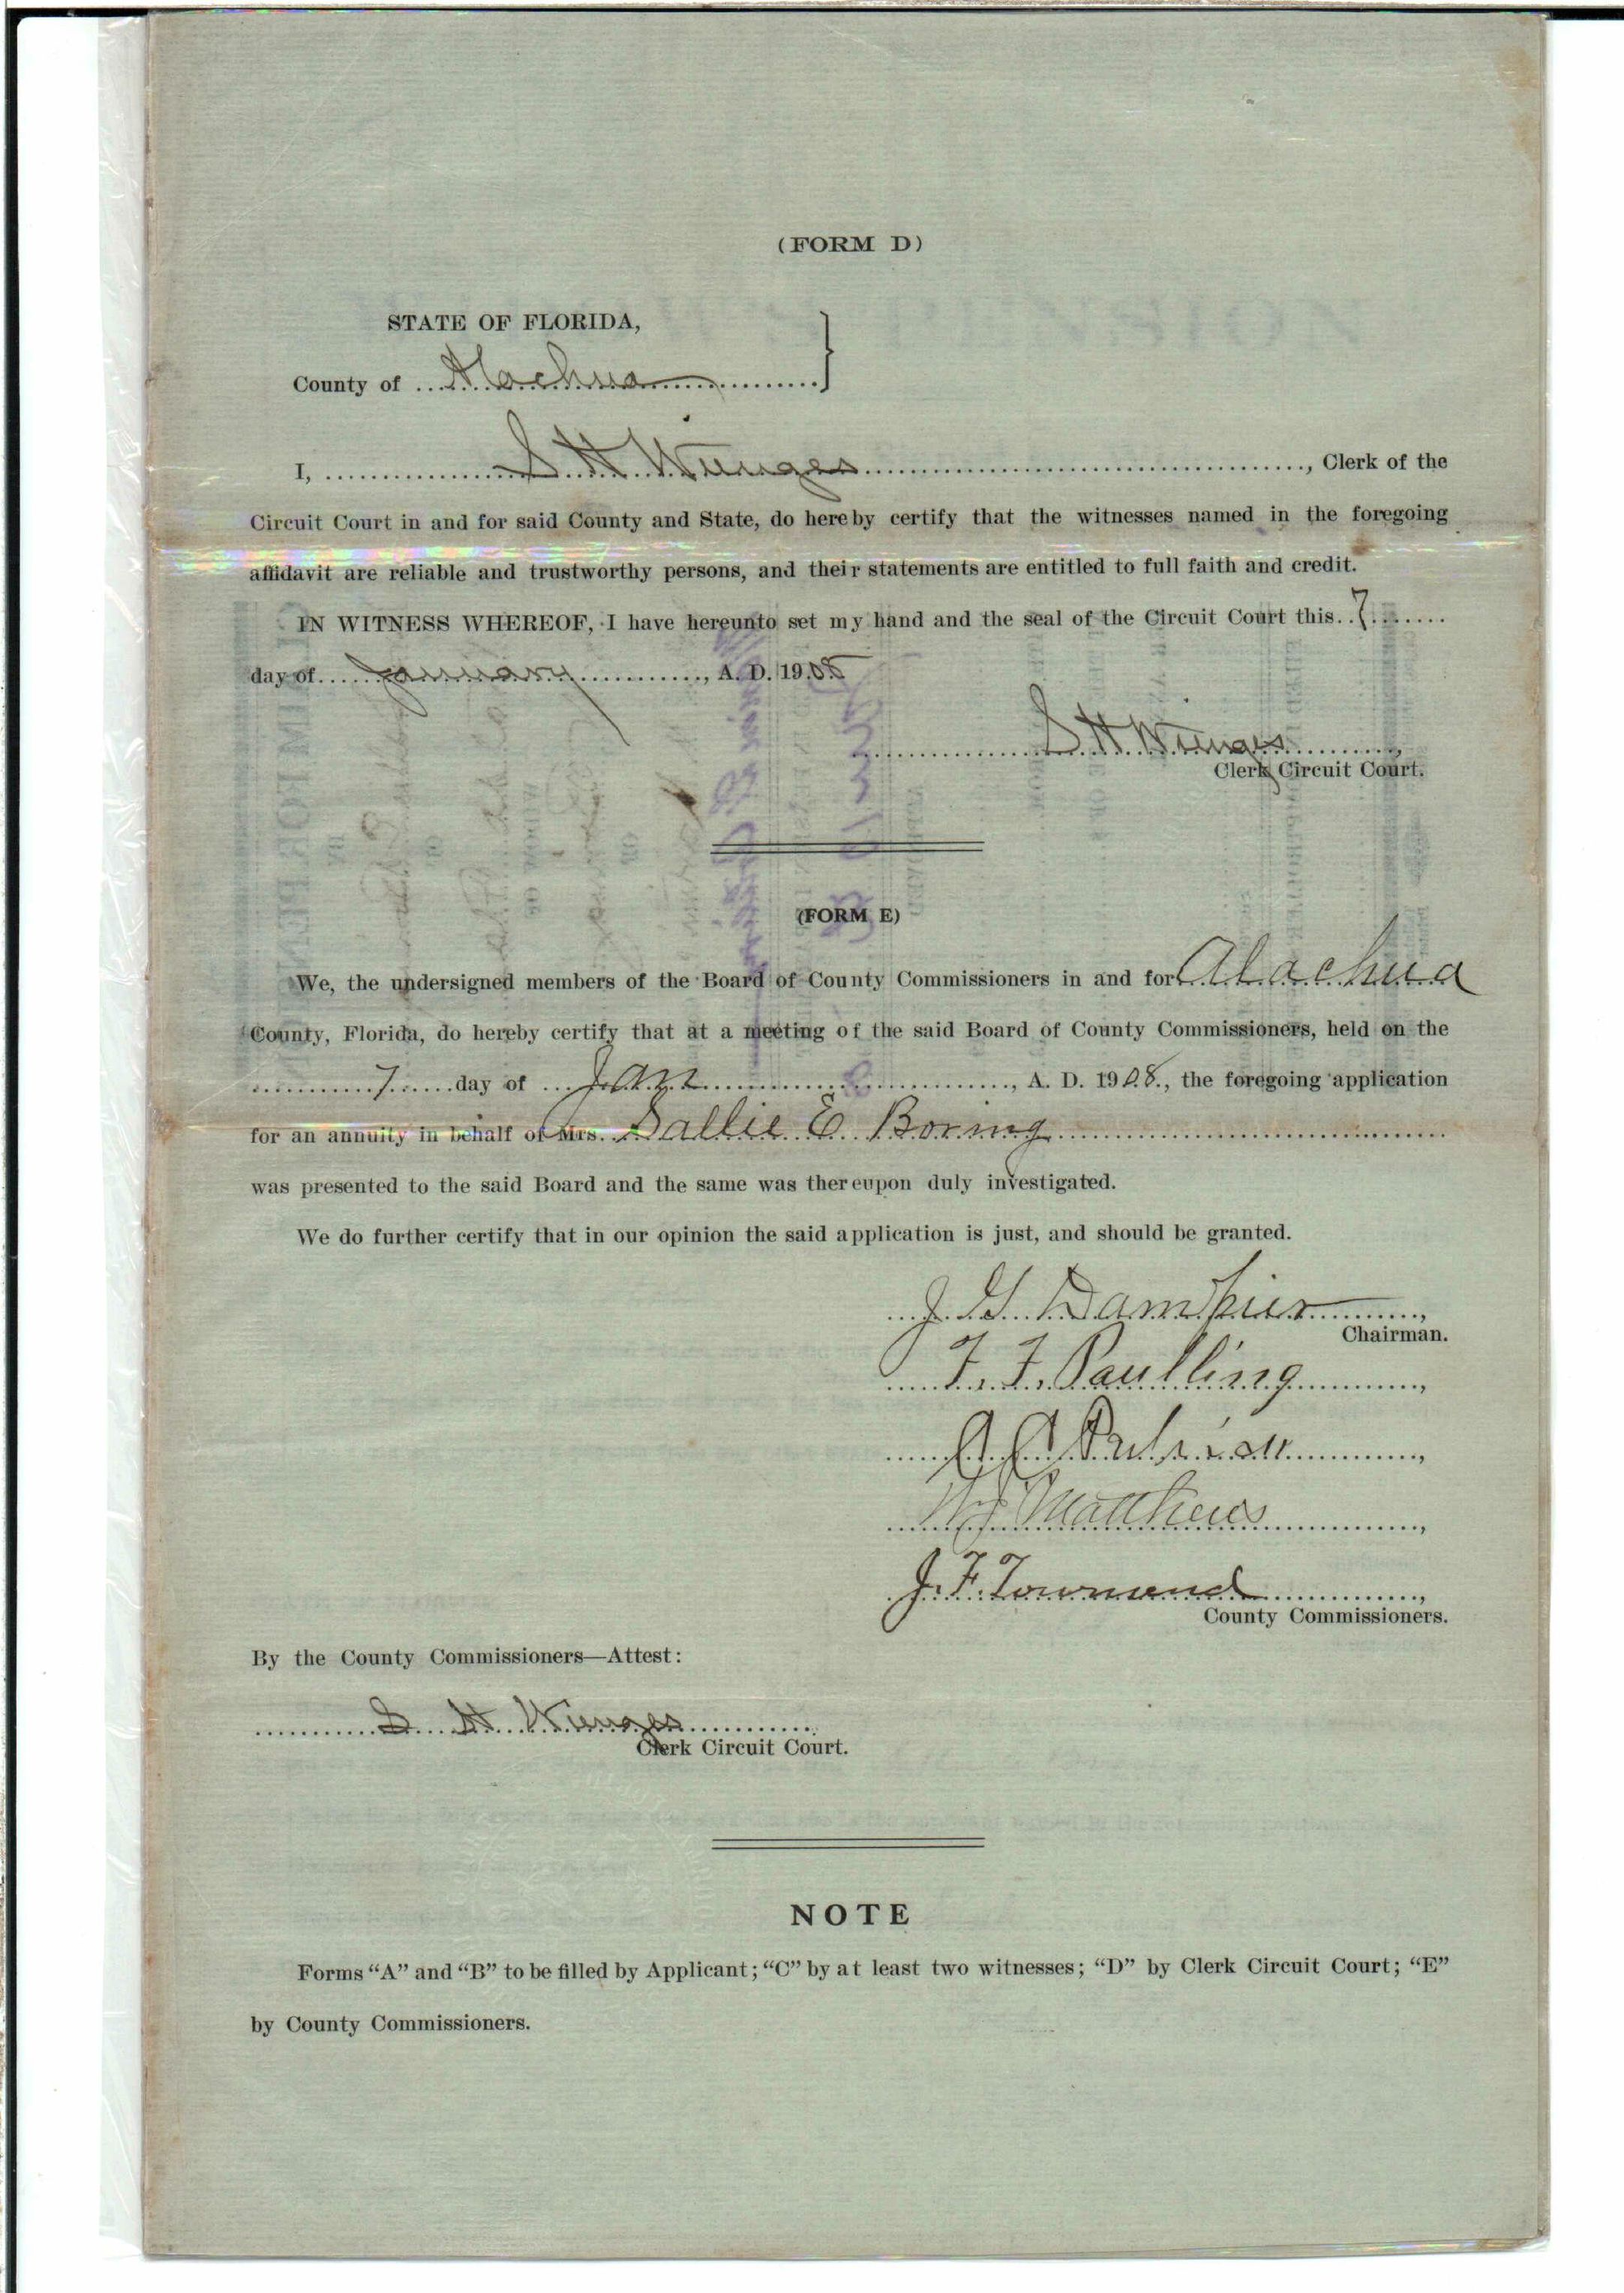 (FORM D)
STATE OF FLORIDA,
County of Alachua
I, S H Wienges, Clerk of the
Circuit Court in and for said County and State, do hereby certify that the witnesses named in the foregoing
affidavit are reliable and trustworthy persons, and their statements are entitled to full faith and credit.
IN WITNESS WHEREOF, I have hereunto set my hand and the seal of the Circuit Court this 7
day of January, A. D. 1908
S H Wienges
Clerk Circuit Court.
(FORM E)
We, the undersigned members of the Board of County Commissioners in and for Alachua
County, Florida, do hereby certify that at a meeting of the said Board of County Commissioners, held on the
7 day of Jan, A. D. 1908, the foregoing application
for an annuity in behalf of Mrs. Sallie E Boring
was presented to the said Board and the same was thereupon duly investigated.
We do further certify that in our opinion the said application is just, and should be granted.
J. G. Dampier,
Chairman.
F. F. Paulling,
Matthews,
J. F. Townsend,
County Commissioners.
By the County Commissioners—Attest:
S H Wienges
Clerk Circuit Court.
NOTE
Forms “A” and “B” to be filled by Applicant; “C” by at least two witnesses; “D” by Clerk Circuit Court; “E”
by County Commissioners.